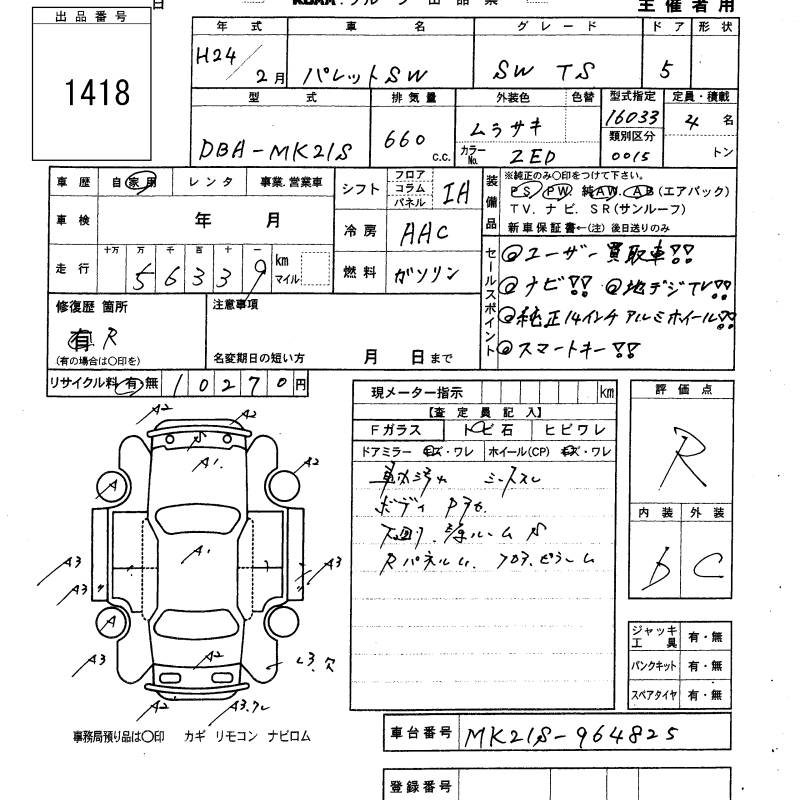 日 主催者用
出品番号
1418
年式 車名 グレード ドア 形状
H24/2月 パレットSW SW TS 5
型式 排気量 外装色 色替 型式指定 定員・積載
DBA-MK21S 660 c.c. ムラサキ 16033 4 名
カラーNo. ZED 類別区分 0015 トン
車歴 自家用 レンタ 事業.営業車
シフト フロア コラム パネル IA
装備品 ※純正のみ○印をつけて下さい。
PS PW 純AW. AB (エアバック)
TV. ナビ. SR(サンルーフ)
新車保証書←(注) 後日送りのみ
車検 年 月
冷房 AAC
走行 十万 万 千 百 十 一 km マイル
56339
燃料 ガソリン
セールスポイント
◎ユーザー買取車!!
◎ナビ!! ◎地デジTV!!
◎純正14インチアルミホイール!!
◎スマートキー!!
修復歴 箇所
有 R
(有の場合は○印を)
注意事項
名変期日の短い方 月 日まで
リサイクル料 有・無 10270円
現メーター指示 km
【査定員記入】
Fガラス トビ石 ヒビワレ
ドアミラー キズ・ワレ ホイール(CP) キズ・ワレ
ボディ
評価点
R
内装 外装
D C
A2 A2
A1.
A2
A
A1
A3 A3
A3 A3
A
A3 A2
A2
ジャッキ工具 有・無
パンクキット 有・無
スペアタイヤ 有・無
事務局預り品は○印 カギ リモコン ナビロム
車台番号 MK21S-964825
登録番号